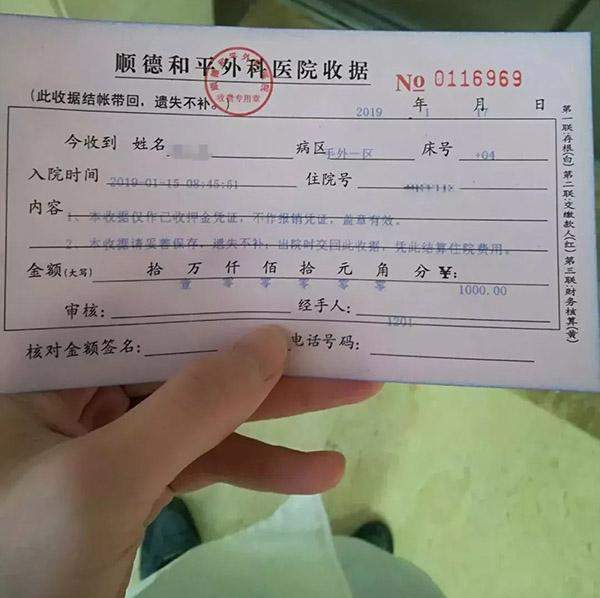 顺德和平外科医院收据
收费专用章
№ 0116969
(此收据结帐带回，遗失不补。)
2019 年 1 月 17 日
今收到 姓名 病区 手外一区 床号 +04
入院时间 2019-01-15 08:45:51 住院号
内容 1、本收据仅作已收押金凭证，不作报销凭证，盖章有效。
2、本收据请妥善保存，遗失不补；出院时交回此收据，凭此结算住院费用。
金额(大写) 拾 万 仟 佰 拾 元 角 分 ¥：
壹 零 零 零 零 零 1000.00
审核： 经手人： 1201
核对金额签名： 电话号码：
第一联·存根(白) 第二联·交缴款人(红) 第三联·财务核算(黄)